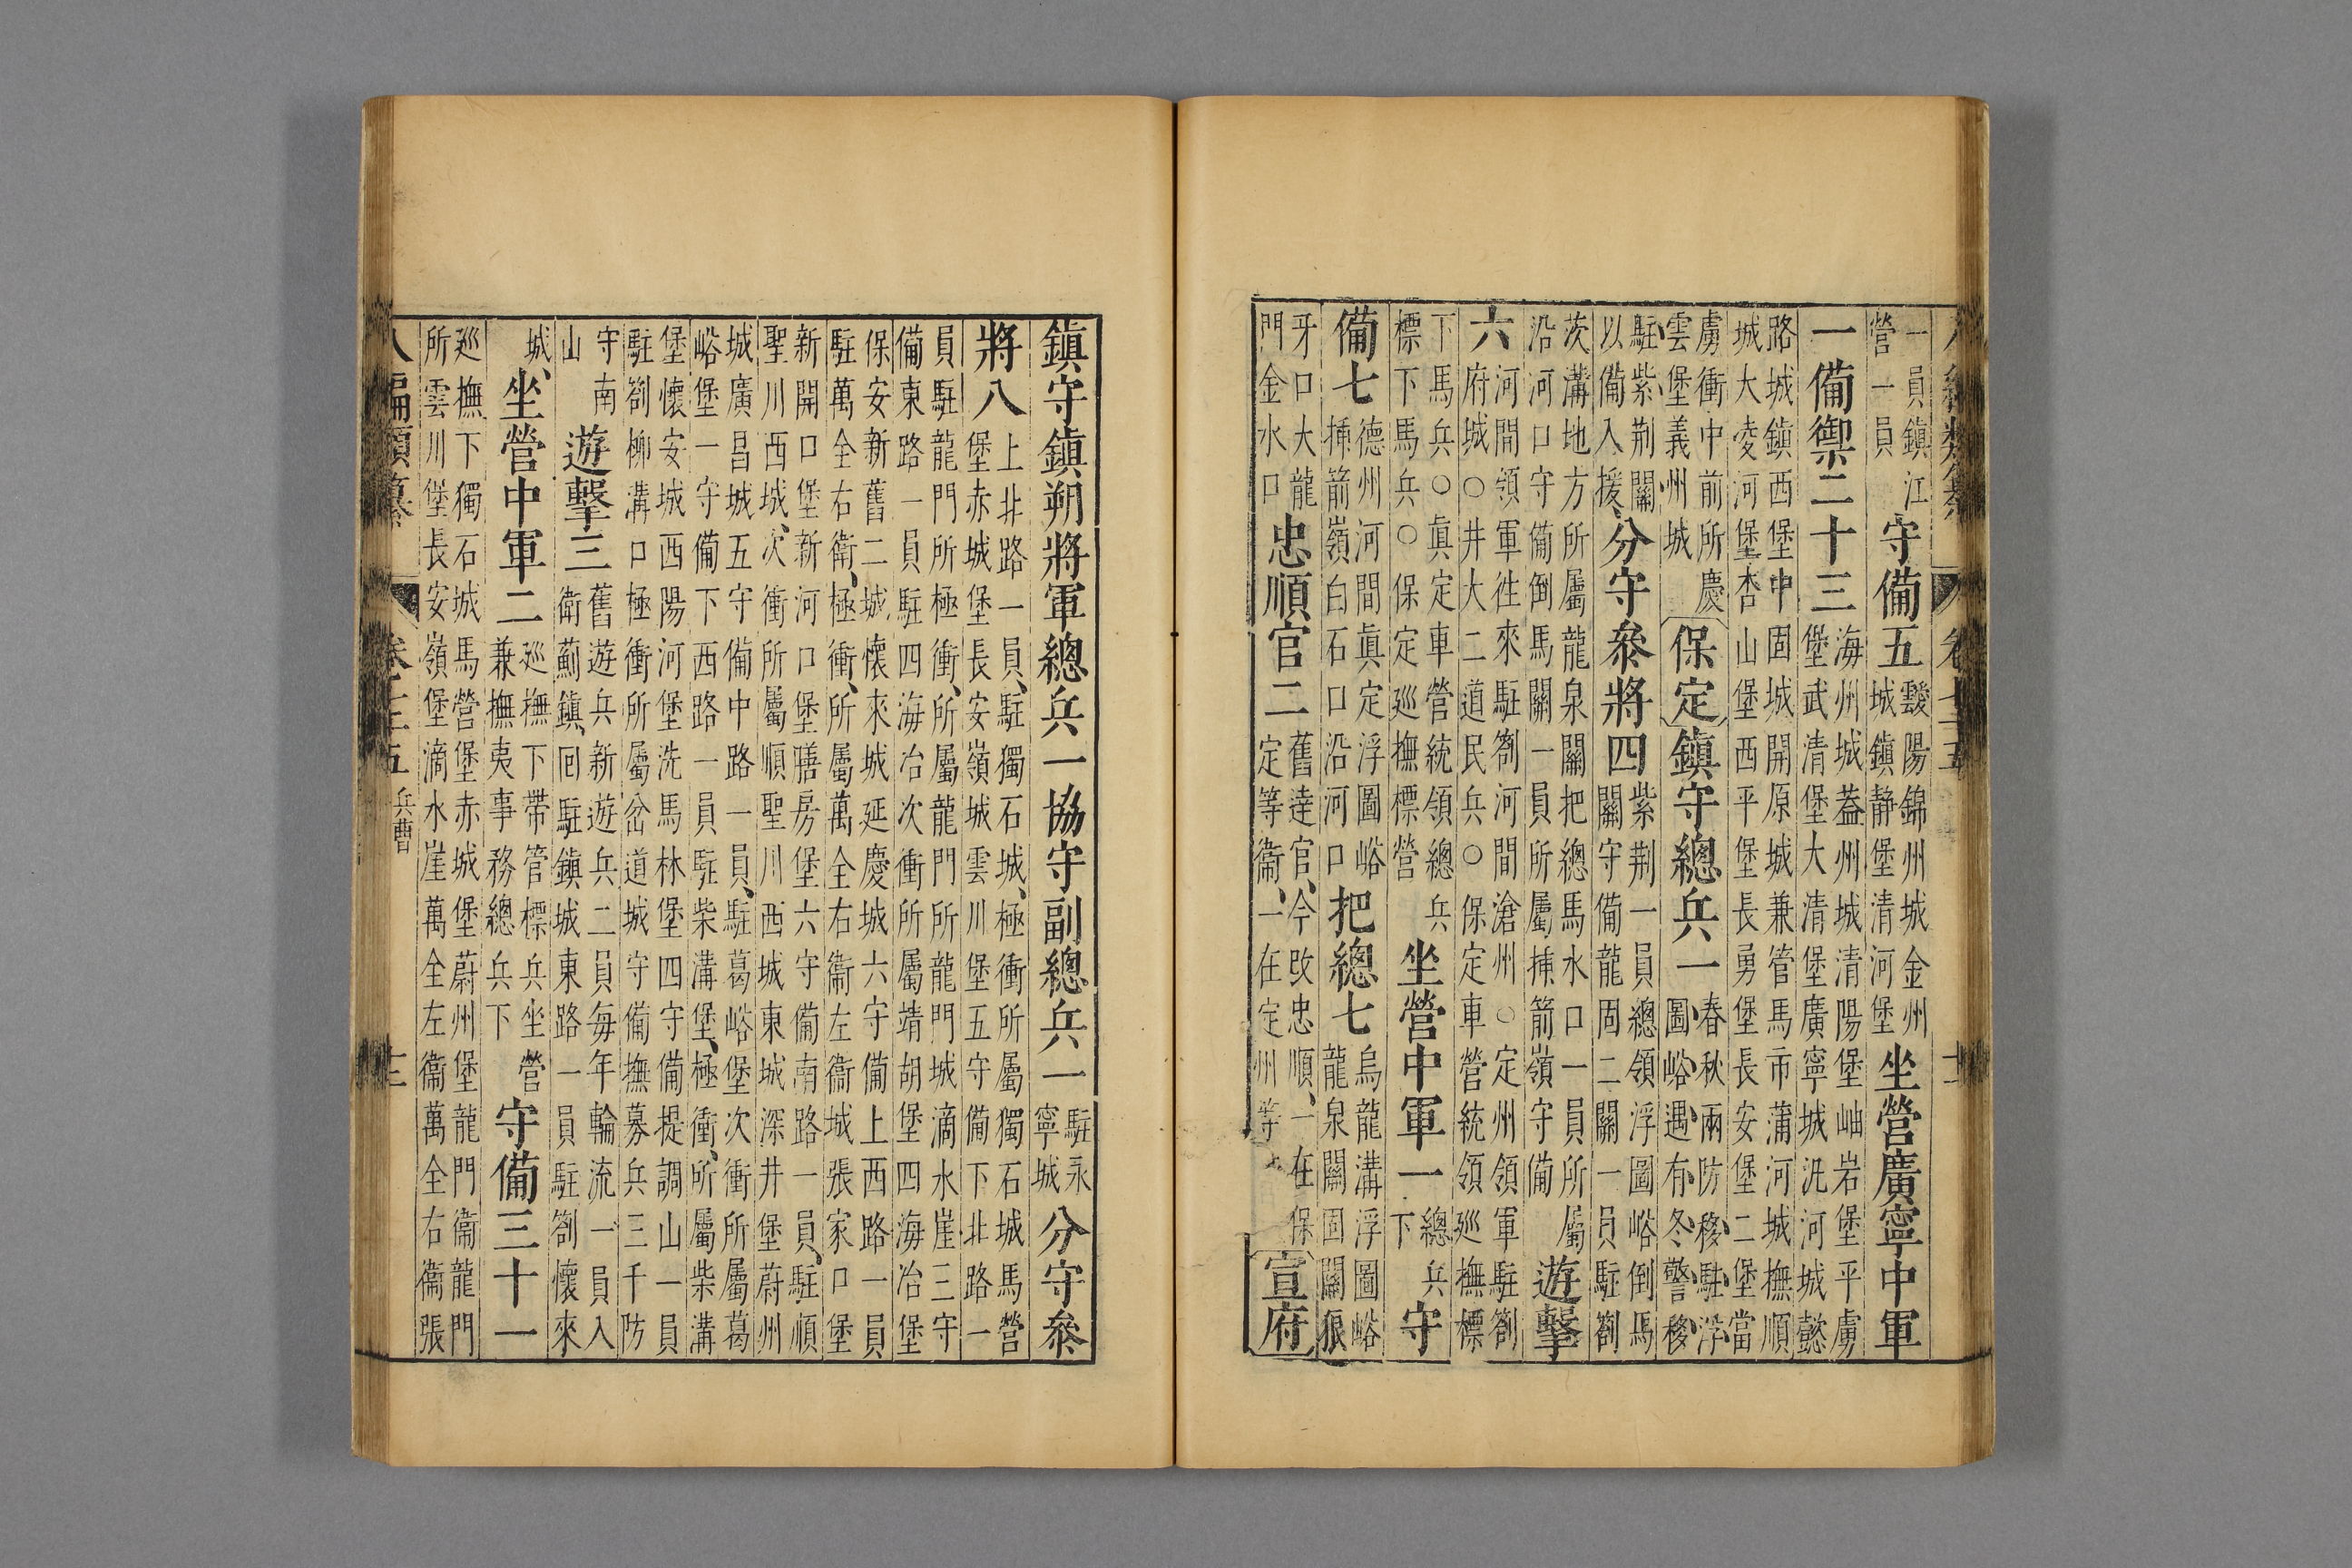 一員鎮江營一員守備五靉陽錦州城金州城鎮静堡清河堡坐營廣寧中軍
一備禦二十三海州城蓋州城清陽堡岫岩堡平虜堡武清堡大清堡廣寧城汎河城懿
路城鎮西堡中固城開原城兼管馬市蒲河城撫順城大凌河堡杏山堡西平堡長勇堡長安堡二堡當
虜衝中前所慶雲堡義州城保定鎮守總兵一春秋兩防移駐浮圖峪遇有冬警移
駐紫荆關以備入援、分守叅將四紫荆一員總領浮圖峪倒馬關守備龍固二關一員駐劄
茨溝地方所屬龍泉關把總馬水口一員所屬沿河口守備倒馬關一員所屬揷箭嶺守備遊擊
六河間領軍徃來駐劄河間滄州○定州領軍駐劄府城○井大二道民兵○保定車營統領巡撫標
下馬兵○眞定車營統領總兵標下馬兵○保定巡撫標營坐營中軍一總兵下守
備七德州河間眞定浮圖峪揷箭嶺白石口沿河口把總七烏龍溝浮圖峪龍泉關固關狼
牙口大龍門金水口忠順官二舊逹官、今改忠順、一在保定等衞、一在定州等宣府
鎮守鎮朔將軍總兵一協守副總兵一駐永寧城分守叅
將八上北路一員、駐獨石城、極衝所屬獨石城馬營堡赤城堡長安嶺城雲川堡五守備下北路一
員駐龍門所極衝、所屬龍門所龍門城滴水崖三守備東路一員駐四海冶次衝所屬靖胡堡四海冶堡
保安新舊二城懷來城延慶城六守備上西路一員駐萬全右衛、極衝、所屬萬全右衞左衞城張家口堡
新開口堡新河口堡膳房堡六守備南路一員、駐順聖川西城、次衝所屬順聖川西城東城深井堡蔚州
城廣昌城五守備中路一員、駐葛峪堡次衝所屬葛峪堡一守備下西路一員駐柴溝堡、極衝、所屬柴溝
堡懷安城西陽河堡洗馬林堡四守備提調山一員駐劄柳溝口極衝所屬岔道城守備撫募兵三千防
守南山遊擊三舊遊兵新遊兵二員每年輪流一員入衛薊鎮、囘駐鎮城東路一員駐劄懷來
城、坐營中軍二巡撫下帶管標兵坐營兼撫夷事務總兵下守備三十一
巡撫下獨石城馬營堡赤城堡蔚州堡龍門衞龍門所雲川堡長安嶺堡滴水崖萬全左衞萬全右衞張
八編類纂 卷七十五 兵曹 十三